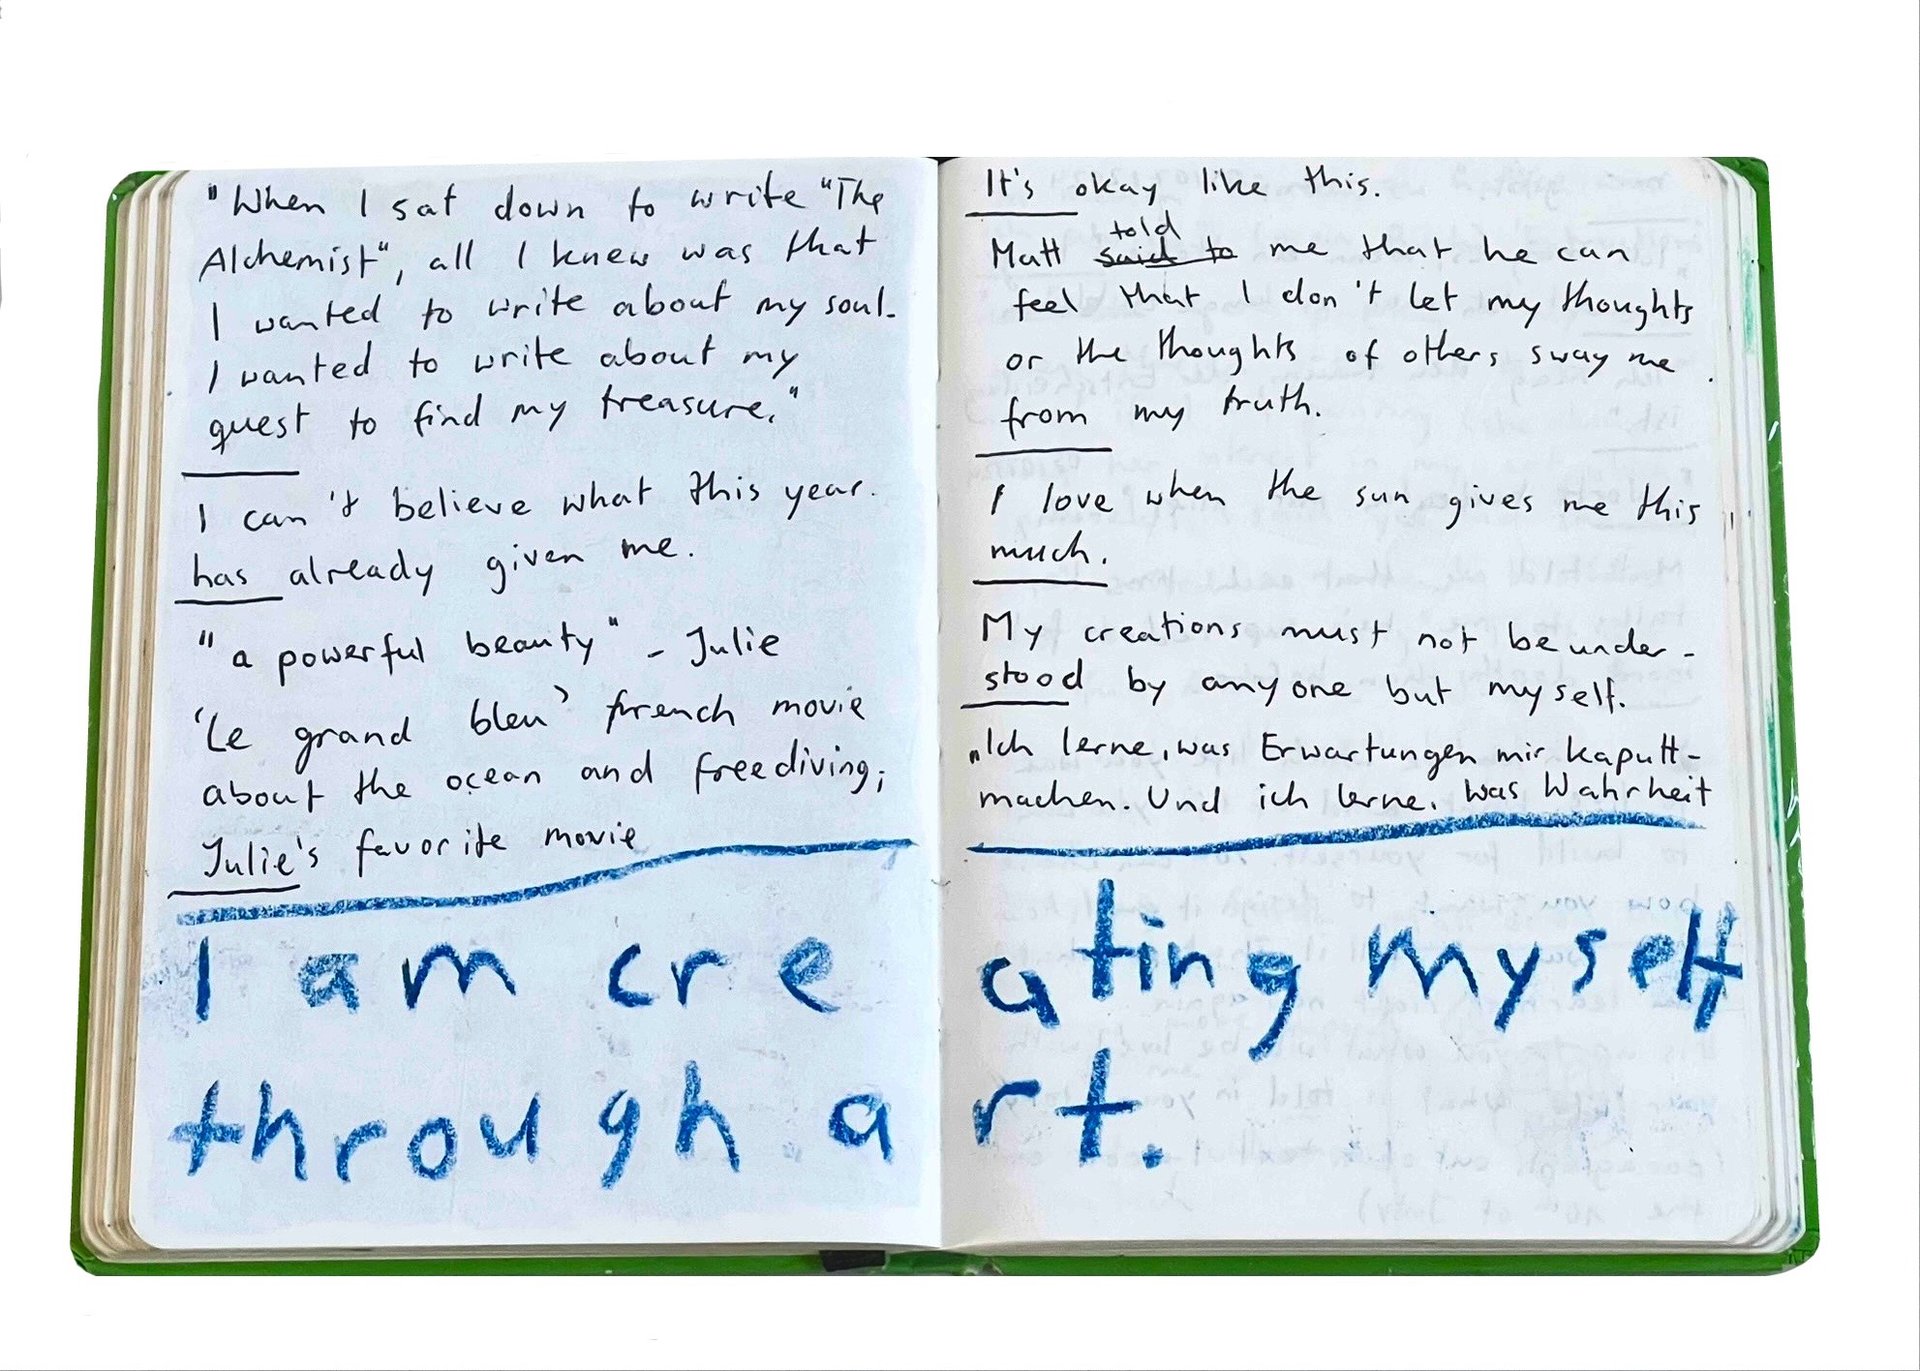 "When I sat down to write "The
Alchemist", all I knew was that
I wanted to write about my soul.
I wanted to write about my
quest to find my treasure."
I can't believe what this year
has already given me.
"a powerful beauty" - Julie
'Le grand bleu' french movie
about the ocean and freediving;
Julie's favorite movie
It's okay like this.
told
Matt said to me that he can
feel that I don't let my thoughts
or the thoughts of others sway me
from my truth.
I love when the sun gives me this
much.
My creations must not be under-
stood by anyone but myself.
„Ich lerne, was Erwartungen mir kaputt-
machen. Und ich lerne, was Wahrheit
I am creating myself
through art.